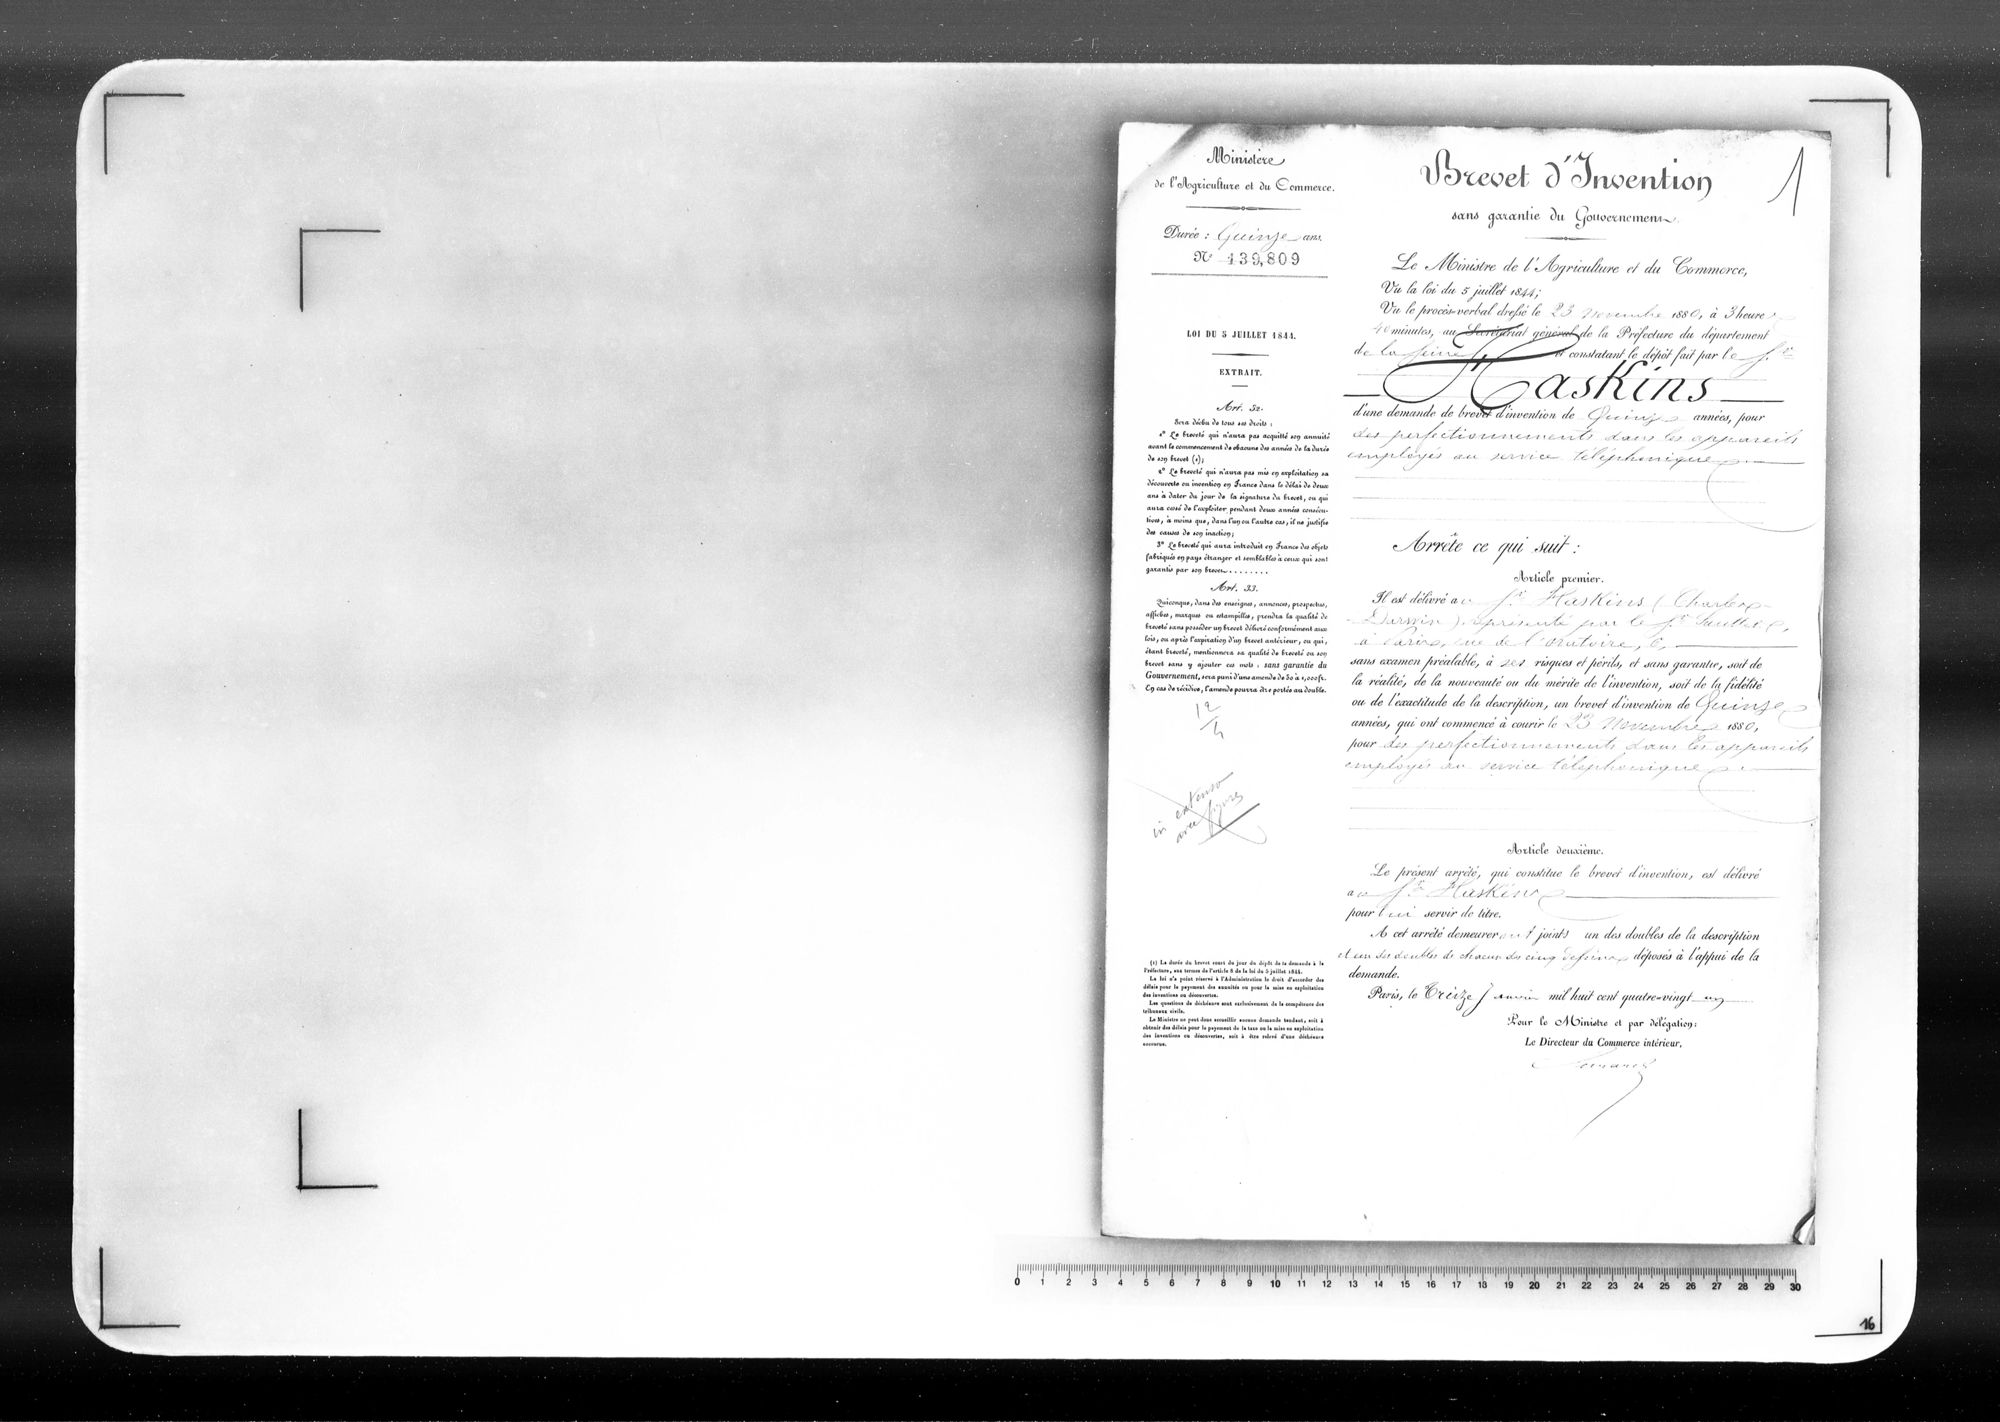 Ministère
de l'Agriculture et du Commerce.
Durée : Quinze ans.
N° 139,809
LOI DU 5 JUILLET 1844.
EXTRAIT.
Art. 32.
Sera déchu de tous ses droits :
1° Le breveté qui n'aura pas acquitté son annuité
avant le commencement de chacune des années de la durée
de son brevet (1);
2° Le breveté qui n'aura pas mis en exploitation sa
découverte ou invention en France dans le délai de deux
ans à dater du jour de la signature du brevet, ou qui
aura cessé de l'exploiter pendant deux années consécu-
tives, à moins que, dans l'un ou l'autre cas, il ne justifie
des causes de son inaction;
3° Le breveté qui aura introduit en France des objets
fabriqués en pays étranger et semblables à ceux qui sont
garantis par son brevet........
Art. 33.
Quiconque, dans des enseignes, annonces, prospectus,
affiches, marques ou estampilles, prendra la qualité de
breveté sans posséder un brevet délivré conformément aux
lois, ou après l'expiration d'un brevet antérieur, ou qui,
étant breveté, mentionnera sa qualité de breveté ou son
brevet sans y ajouter ces mots : sans garantie du
Gouvernement, sera puni d'une amende de 50 à 1,000 fr.
En cas de récidive, l'amende pourra être portée au double.
12
in extenso
avec figures
(1) La durée du brevet court du jour du dépôt de la demande à la
Préfecture, aux termes de l'article 8 de la loi du 5 juillet 1844.
La loi n'a point réservé à l'Administration le droit d'accorder des
délais pour le payement des annuités ou pour la mise en exploitation
des inventions ou découvertes.
Les questions de déchéance sont exclusivement de la compétence des
tribunaux civils.
Le Ministre ne peut donc accueillir aucune demande tendant, soit à
obtenir des délais pour le payement de la taxe ou la mise en exploitation
des inventions ou découvertes, soit à être relevé d'une déchéance
encourue.
Brevet d'Invention
1
sans garantie du Gouvernement.
Le Ministre de l'Agriculture et du Commerce,
Vu la loi du 5 juillet 1844;
Vu le procès-verbal dressé le 23 novembre 1880, à 3 heures
40 minutes, au Secrétariat général de la Préfecture du département
de la Seine et constatant le dépôt fait par le Sr
Haskins
d'une demande de brevet d'invention de Quinze années, pour
des perfectionnements dans les appareils
employés au service téléphonique
Arrête ce qui suit :
Article premier.
Il est délivré au Sr Haskins (Charles
Darwin) représenté par le Sr
à Paris, rue de l'oratoire, 6,
sans examen préalable, à ses risques et périls, et sans garantie, soit de
la réalité, de la nouveauté ou du mérite de l'invention, soit de la fidélité
ou de l'exactitude de la description, un brevet d'invention de Quinze
années, qui ont commencé à courir le 23 Novembre 1880,
pour des perfectionnements dans les appareils
employés au service téléphonique
Article deuxième.
Le présent arrêté, qui constitue le brevet d'invention, est délivré
au Sr Haskins
pour lui servir de titre.
A cet arrêté demeureront joints un des doubles de la description
et un des doubles de chacun des cinq dessins déposés à l'appui de la
demande.
Paris, le Treize Janvier mil huit cent quatre-vingt un
Pour le Ministre et par délégation:
Le Directeur du Commerce intérieur,
0 1 2 3 4 5 6 7 8 9 10 11 12 13 14 15 16 17 18 19 20 21 22 23 24 25 26 27 28 29 30
16